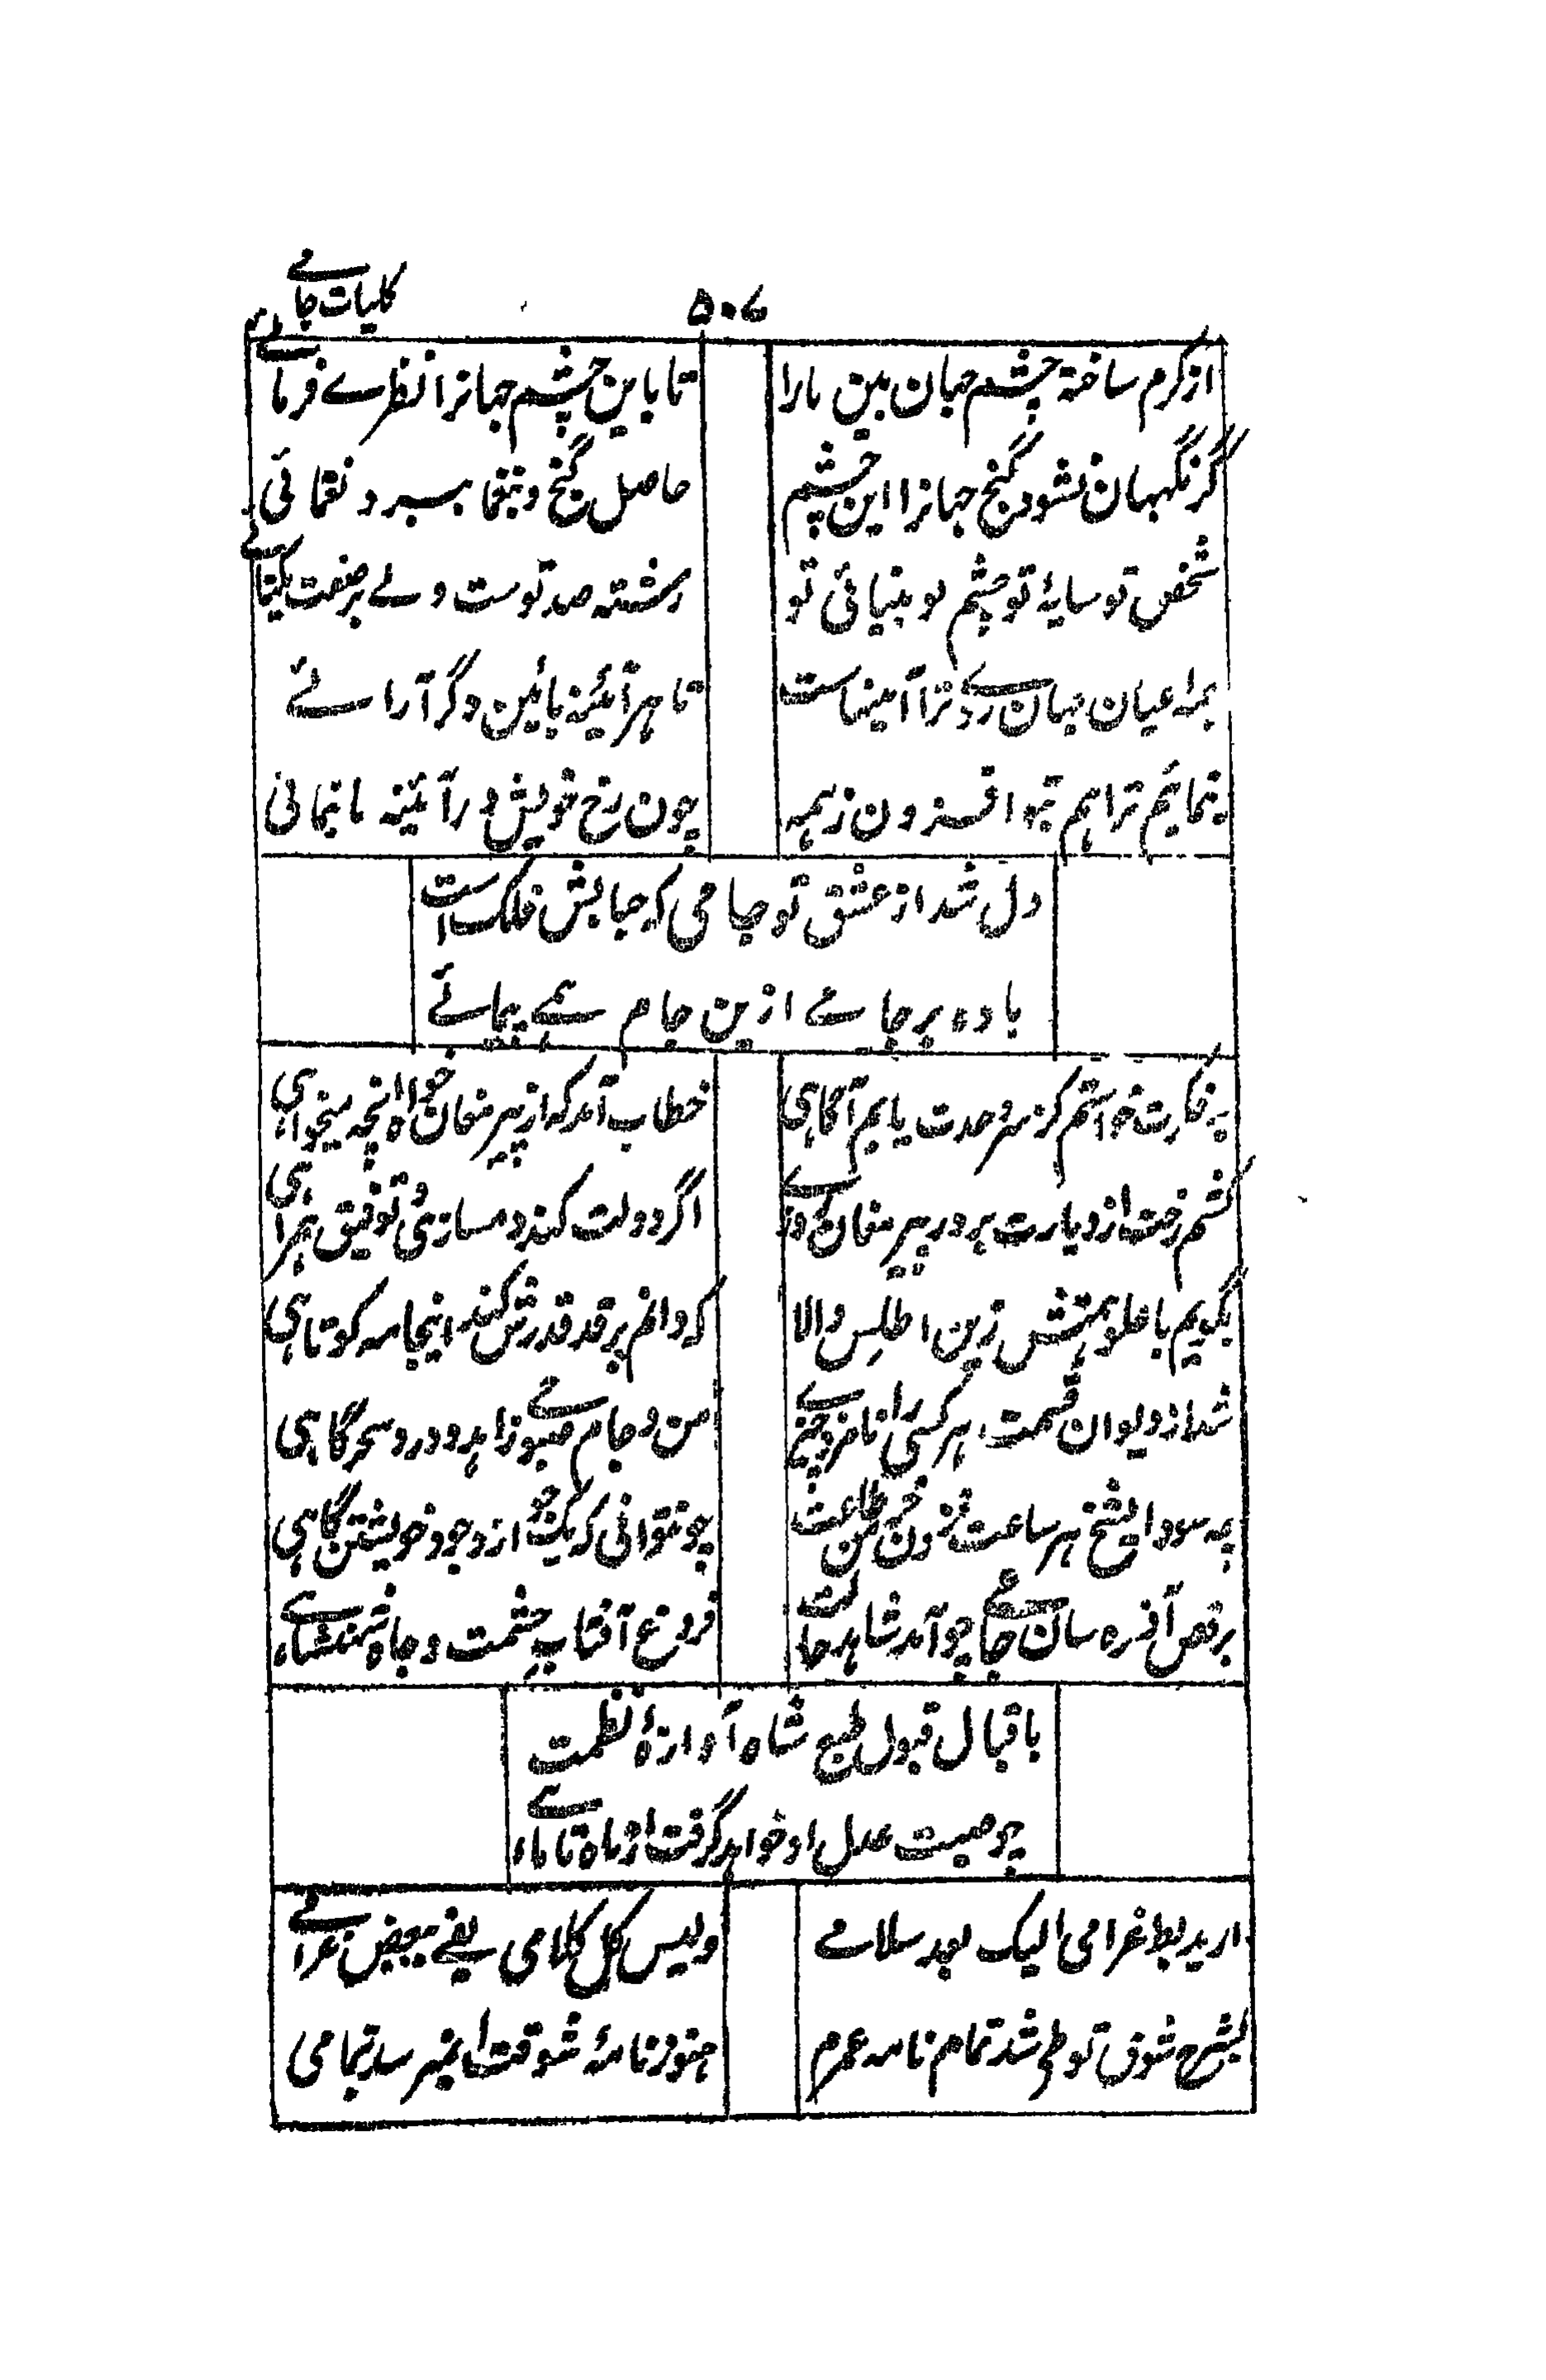 کلیات جامی
۵۰۶
از کرم ساختۀ چشم جهان بین ما را
تا باین چشم جهانرا نظرے فرمائے
گر نگهبان نشود گنج جهانرا این چشم
حاصل گنج و بنقما ببرد نقمائی
شخص تو سایۀ تو چشم تو بینائی تو
رشته صد توست ولے بر صفت یکتائے
همه اعیان جهان روے ترا آئینهاست
تا هر آئینه بآئین دگر آرائے
بنمائیم ترا هم بتو افزون ز همه
چون رخ خویش در آئینه ما بنمائی
دل شد از عشق تو جامی که حبابش فلک است
باده بر جامے ازین جام همے پیمائے
بفکرت خواستم کز سر وحدت یابم آگاهی
خطاب آمد که از پیر مغان خواه انچه میخواهی
کشم رخت ازدیارت بر در پیر مغان روزے
اگر دولت کند دمسازی و توفیق همراهی
بگویم با علو همتش زین اطلس والا
که دانم بر قد قدرش کند اینجامه کوتاهی
شد از دیوان قسمت هر کسی را نامزد چیزے
من و جام صبوح و زاهد و ورد سحرگاهی
چه سود ایشیخ هر ساعت فزودن خرمن طاعت
چو نتوانی که یک جو از وجود خویشتن کاهی
برقص آ ذره سان جامی چو آمد شاهد حالت
فروغ آفتاب حشمت و جاه شهنشاهے
باقبال قبول طبع شاه آوازۀ نظمت
چو صیت عدل او خواهد گرفت از ماه تا ماهے
ارید بط غرامی الیک بعد سلامے
ولیس کل کلامی یفے ببعض غرامے
بشرح شوق تو طی شد تمام نامه عمرم
هنوز نامۀ شوقت نمیرسد بتمامی